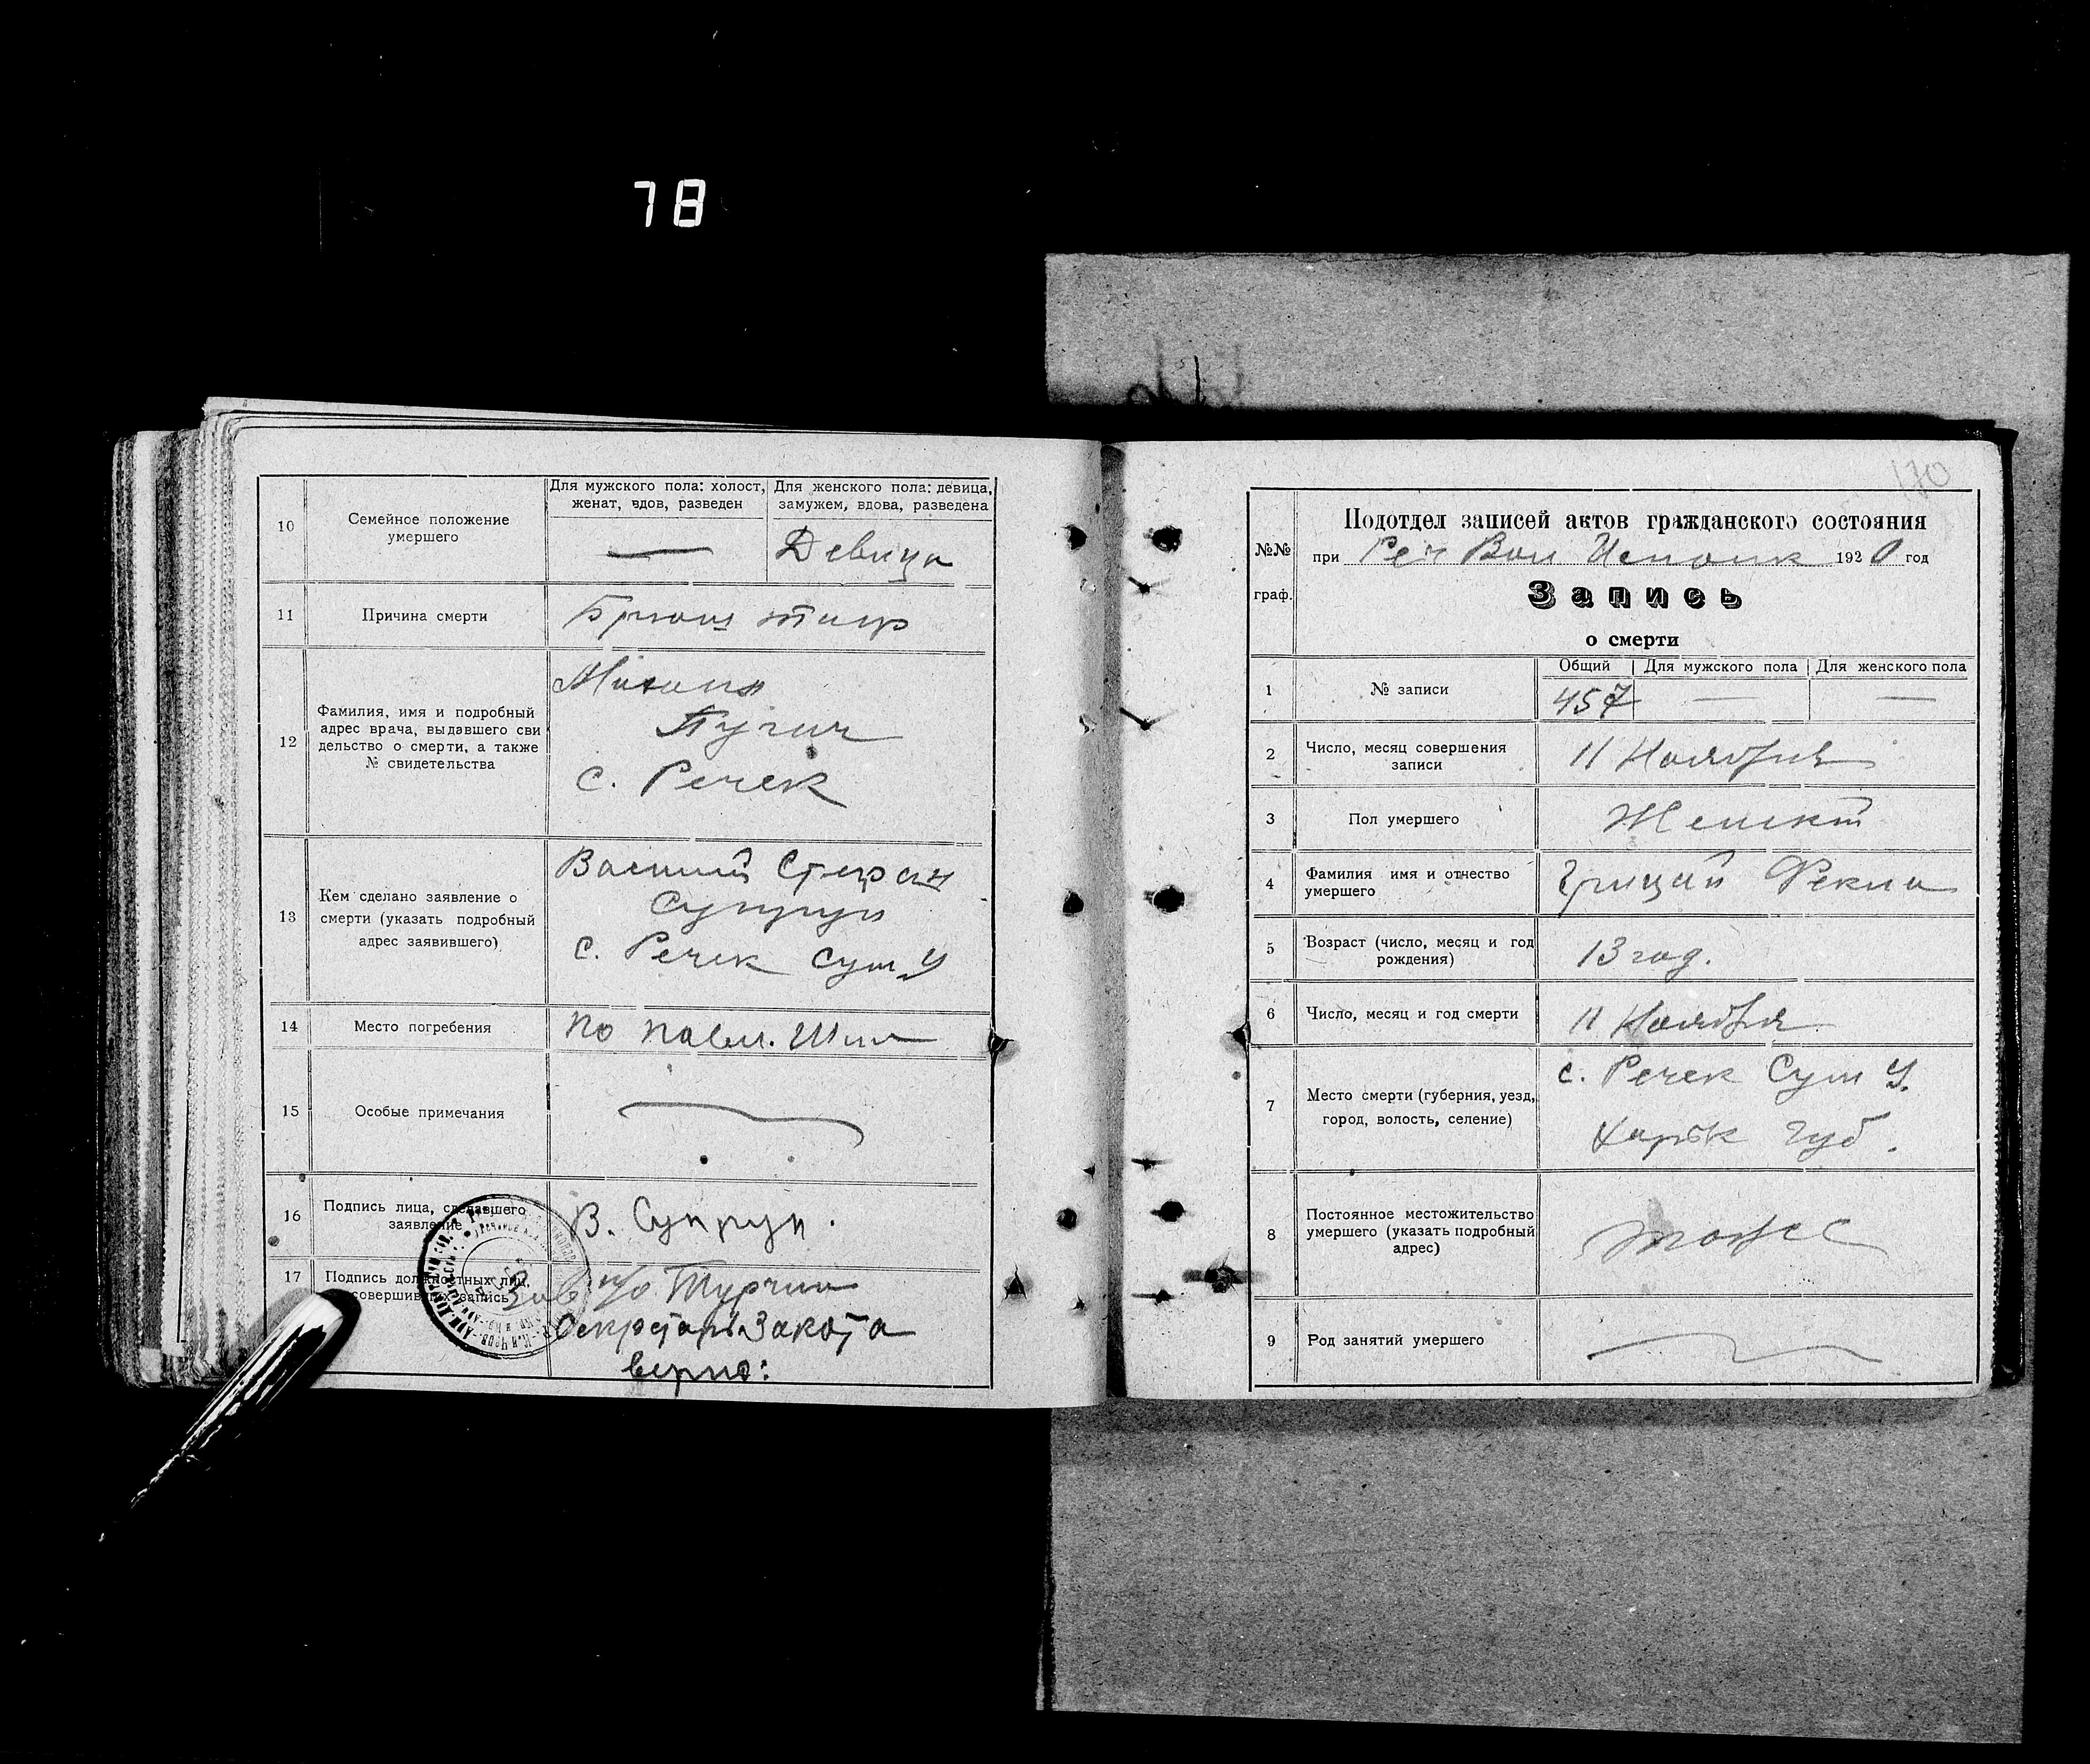 78
10
Семейное положение
умершего
Для мужского пола: холост,
женат, вдов, разведен
Для женского пола: девица,
замужем, вдова, разведена
—
Девица
11
Причина смерти
Брюш тиф
12
Фамилия, имя и подробный
адрес врача, выдавшего сви
детельство о смерти, а также
№ свидетельства
с. Речек
13
Кем сделано заявление о
смерти (указать подробный
адрес заявившего)
Василий Стефан
Супрун
с. Речек Сум У
14
Место погребения
по
15
Особые примечания
16
Подпись лица, сделавшего
заявление
В. Супрун.
17
Подпись должностных лиц,
совершивших запись
Зав п/о Турчин
Секретарь Закота
верно:
170
№№
граф.
Подотдел записей актов гражданского состояния
при Реч Вол Исполк 1920 год
Запись
о смерти
1
№ записи
Общий
Для мужского пола
Для женского пола
457
—
—
2
Число, месяц совершения
записи
11 Ноября
3
Пол умершего
Женский
4
Фамилия имя и отчество
умершего
Грицай Фекла
5
Возраст (число, месяц и год
рождения)
13 год.
6
Число, месяц и год смерти
11 Ноября
7
Место смерти (губерния, уезд,
город, волость, селение)
с. Речек Сум У.
Харьк губ.
8
Постоянное местожительство
умершего (указать подробный
адрес)
тоже
9
Род занятий умершего